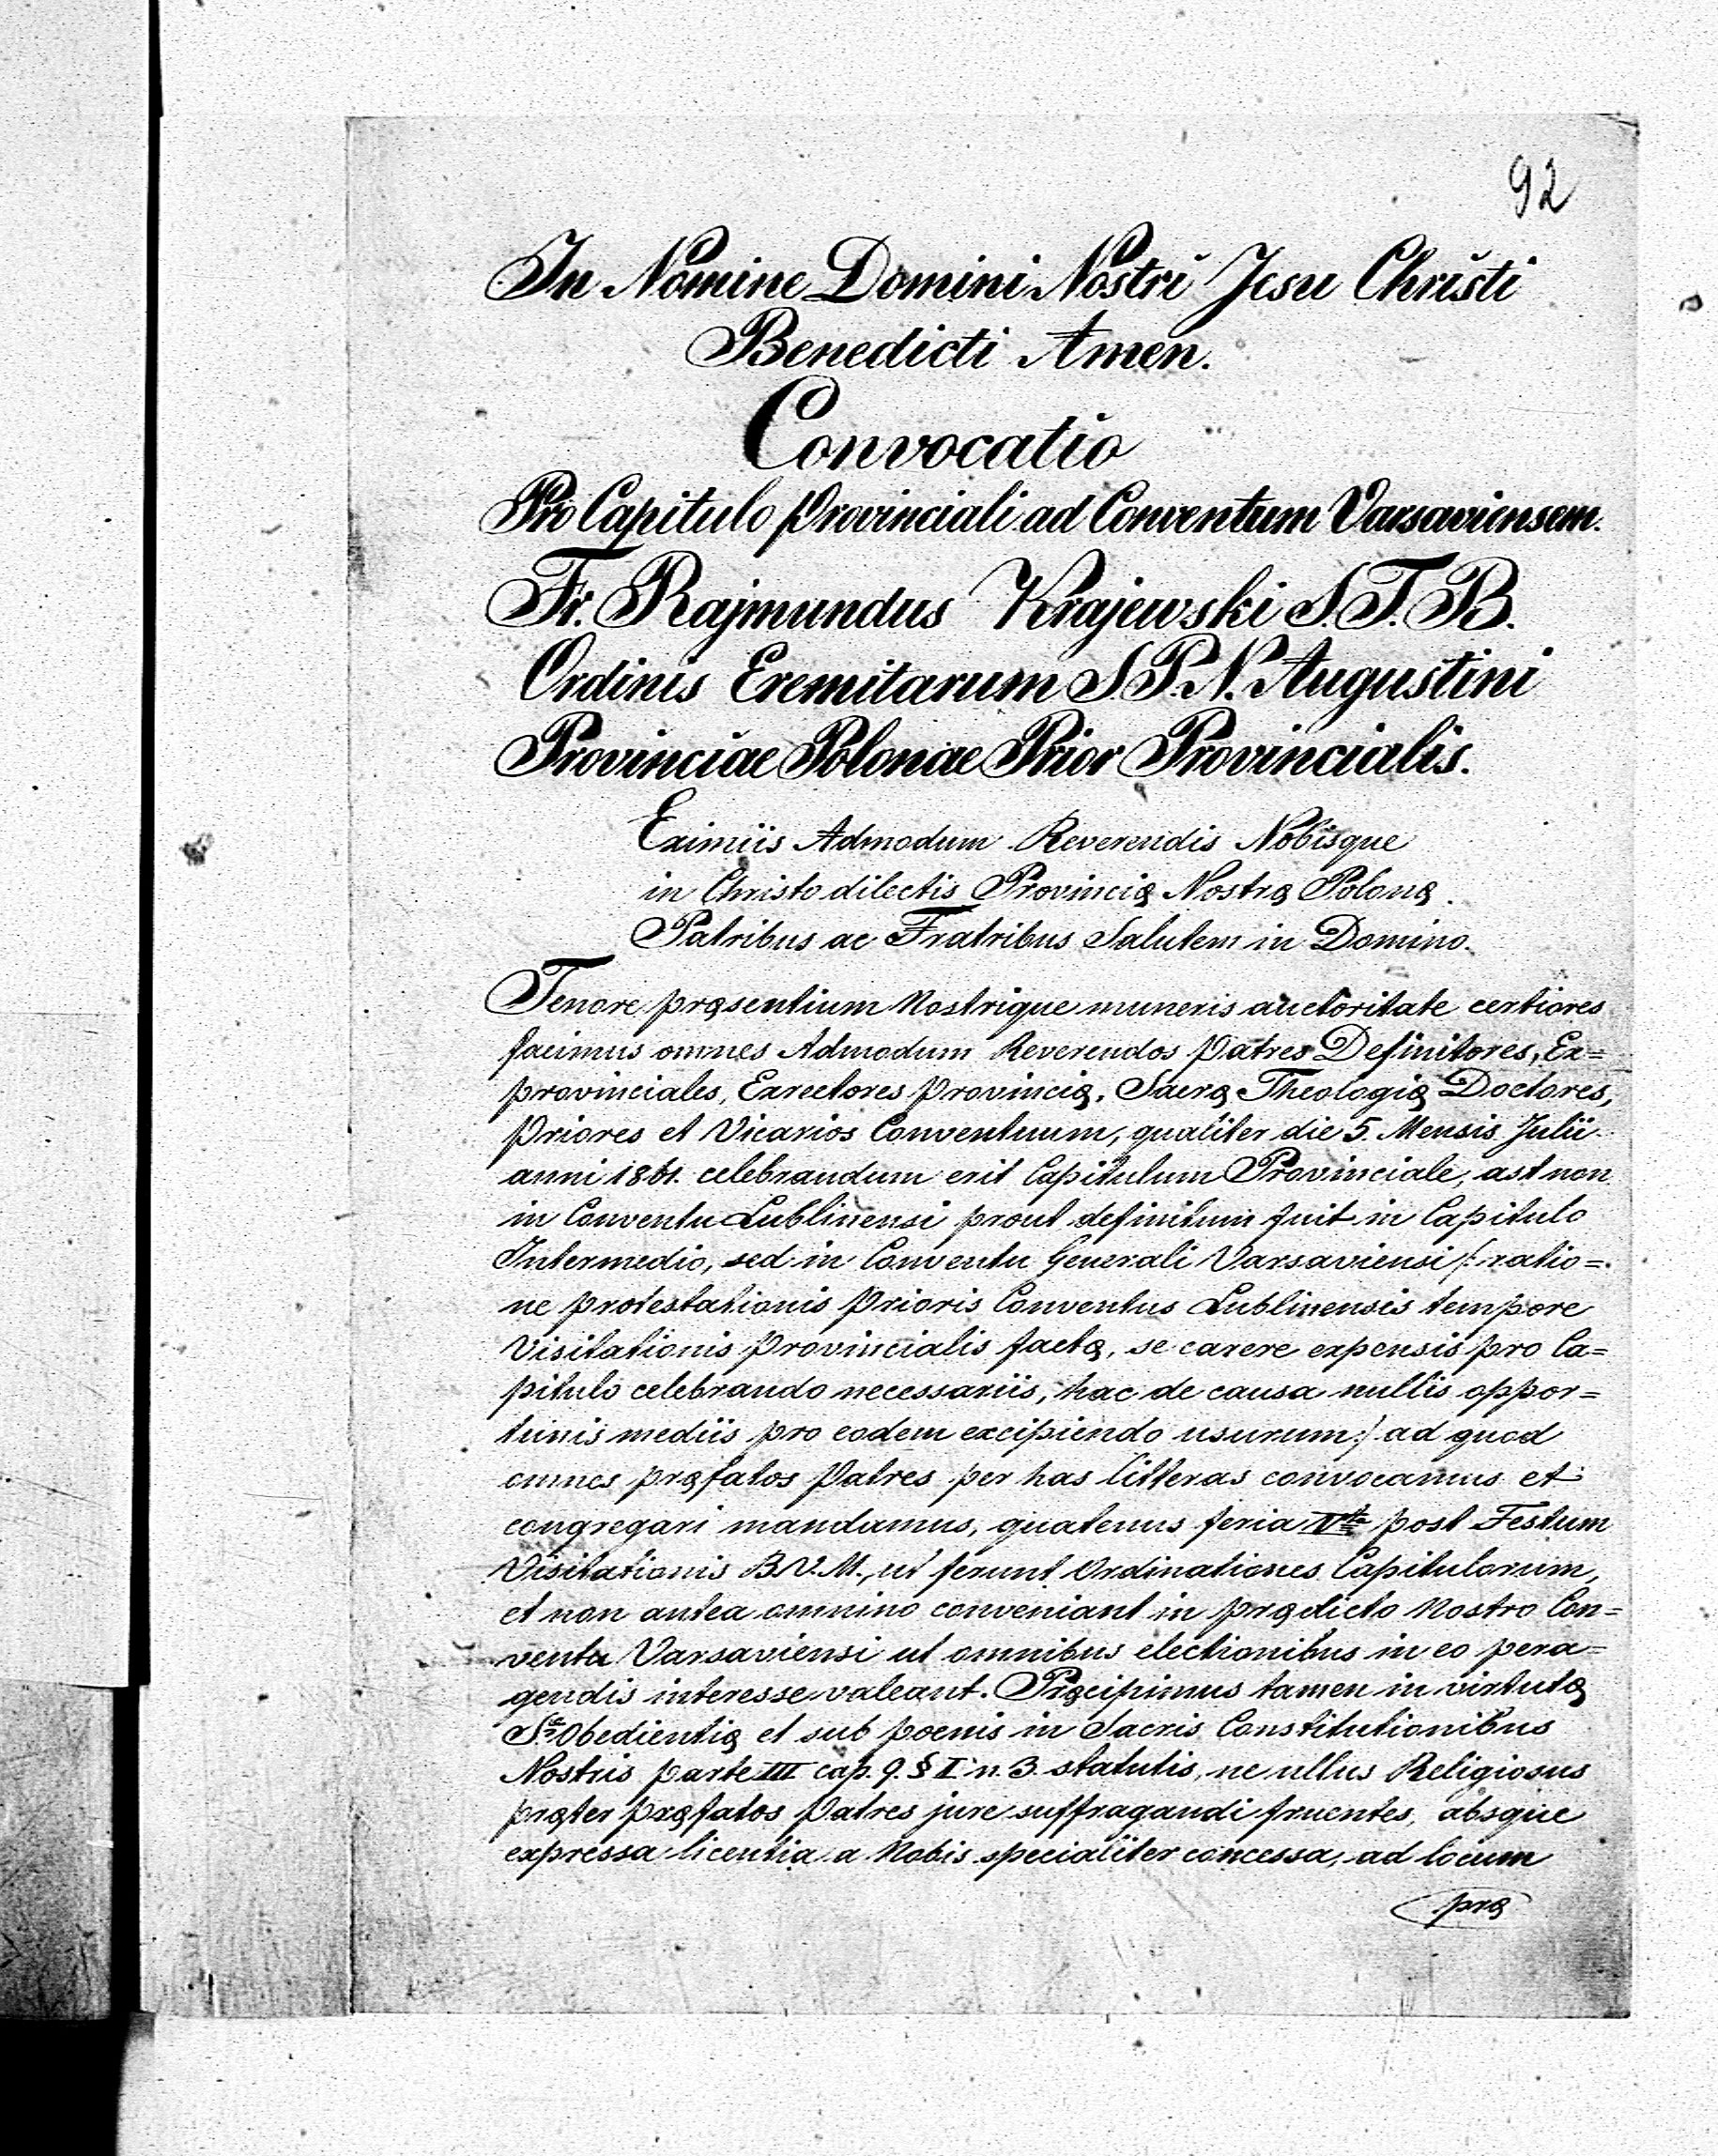 92
In Nomine Domini Nostri Jesu Christi
Benedicti Amen.
Convocatio
Pro Capitulo Provinciali ad Conventum Varsaviensem.
Fr. Rajmundus Krajewski S.T.B.
Ordinis Eremitarum S.P.N. Augustini
Provinciae Polonae Prior Provincialis.
Eximiis Admodum Reverendis Nobisque
in Christo dilectis Provincię Nostrę Polonę.
Patribus ac Fratribus Salutem in Domino.
Tenore pręsentium Nostrique muneris auctoritate certiores
facimus omnes Admodum Reverendos Patres Definitores, Ex=
provinciales, Exrectores Provincię, Sacrę Theologię Doctores,
Priores et Vicarios Conventuum, qualiter die 5. Mensis Julii
anni 1861. celebrandum erit Capitulum Provinciale, ast non
in Conventu Lublinensi prout definitum fuit in Capitulo
Intermedio, sed in Conventu Generali Varsaviensi /: ratio=
ne protestationis Prioris Conventus Lublinensis tempore
Visitationis Provincialis factę, se carere expensis pro Ca=
pitulo celebrando necessariis, hac de causa nullis oppor=
tunis mediis pro eodem excipiendo usurum :/ ad quod
omnes pręfatos Patres per has litteras convocamus et
congregari mandamus, quatenus feria Vta post Festum
Visitationis B.V.M., ut ferunt Ordinationes Capitulorum,
et non antea omnino conveniant in prędicto Nostro Con=
ventu Varsaviensi ut omnibus electionibus in eo pera=
gendis interesse valeant. Pręcipimus tamen in virtutę
Stę Obedientię et sub poenis in Sacris Constitutionibus
Nostris parte III cap. 9. § I n. 3. statutis, ne ullus Religiosus
pręter pręfatos Patres jure suffragandi fruentes, absque
expressa licentia a Nobis specialiter concessa, ad locum
prę